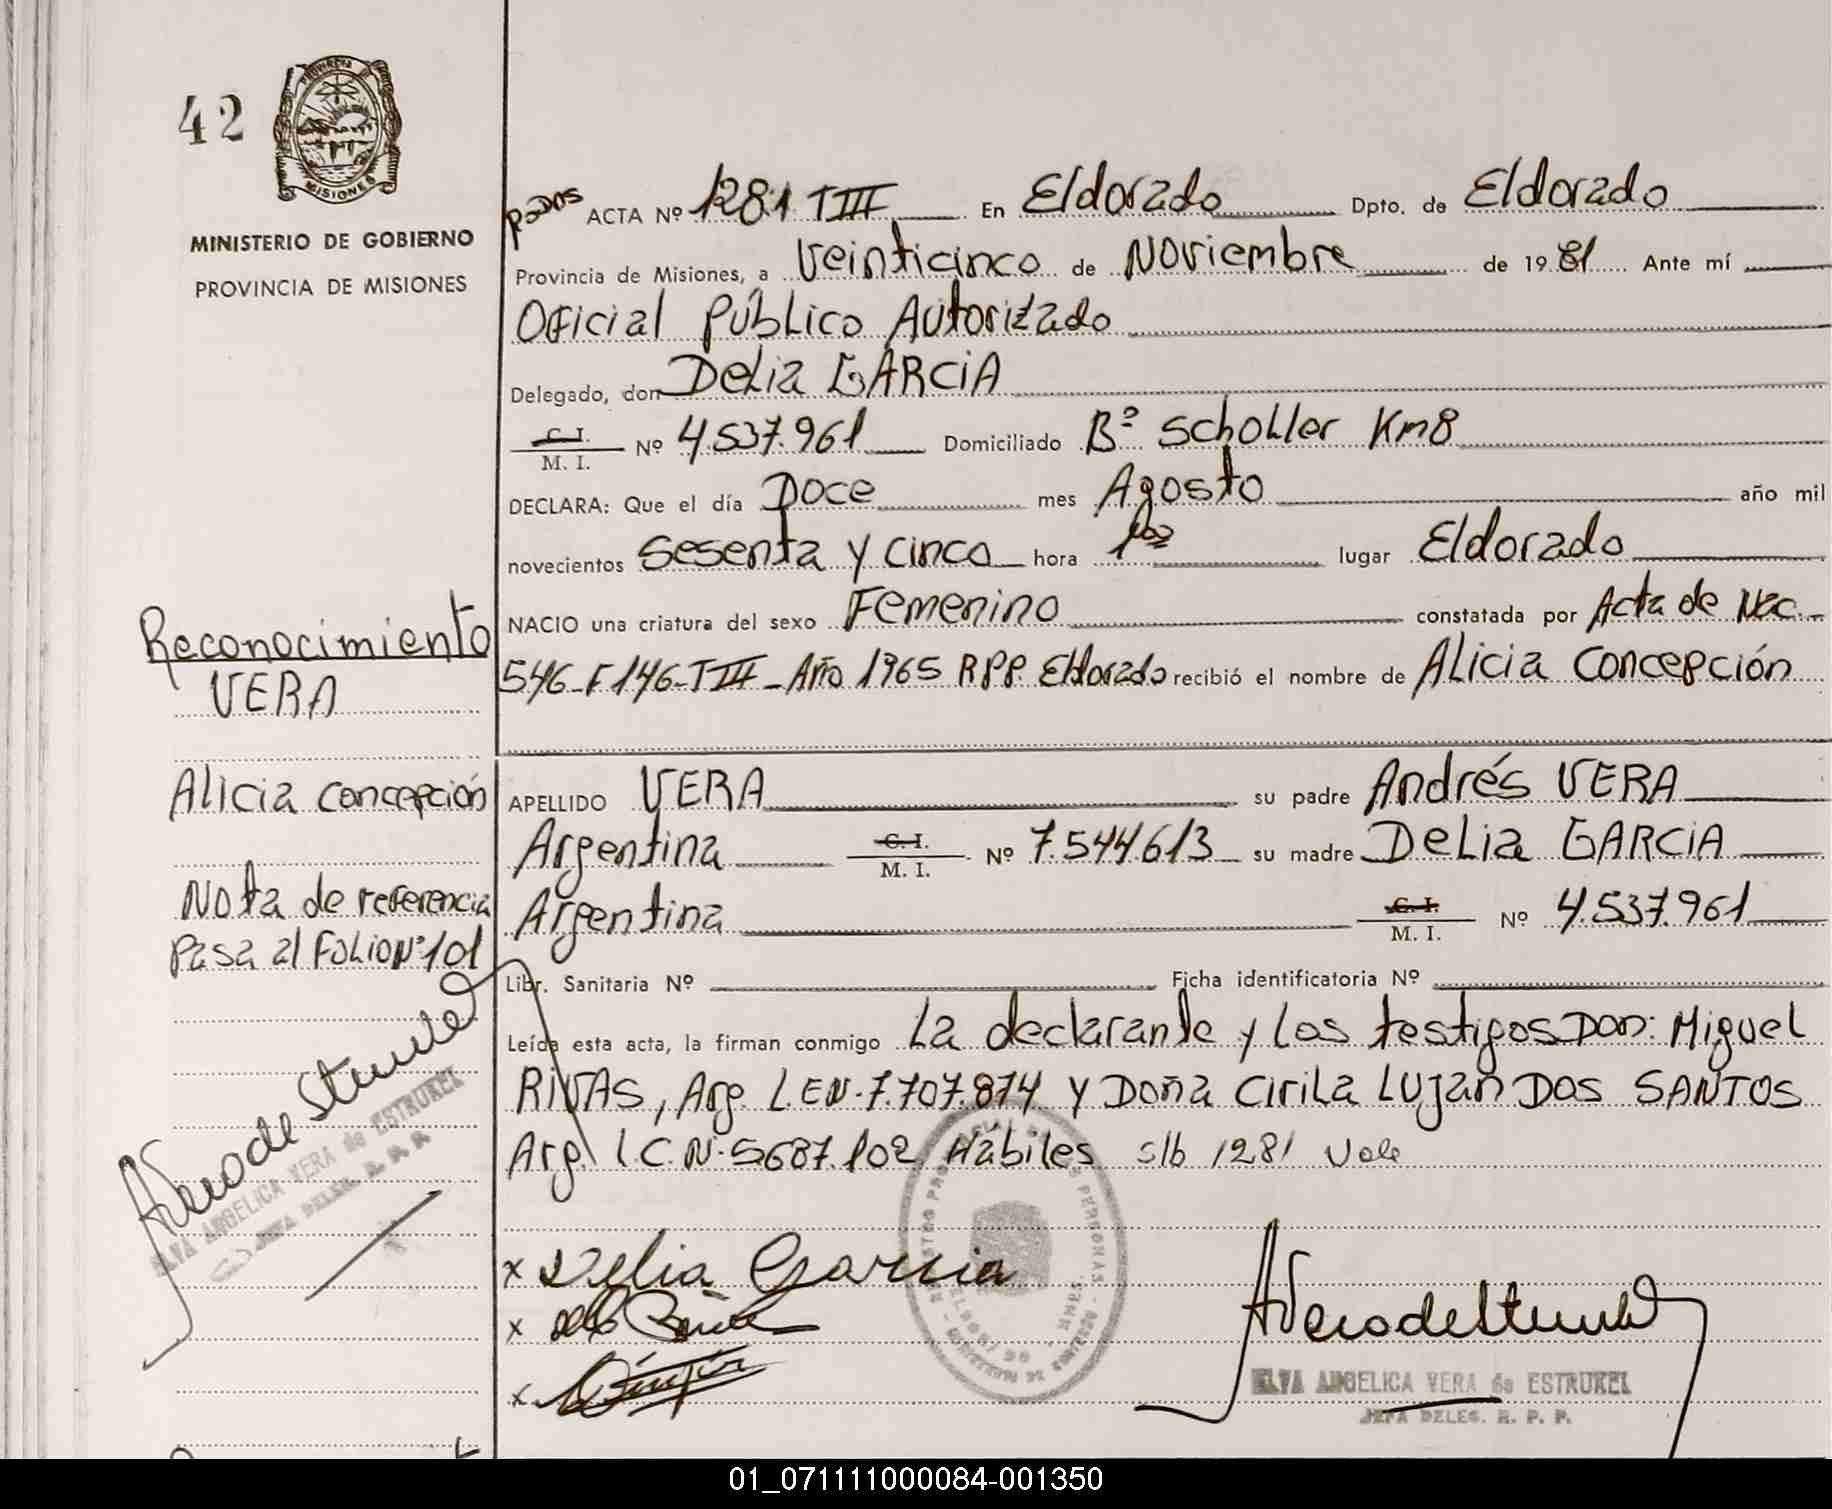 42
PROVINCIA
MISIONES
MINISTERIO DE GOBIERNO
PROVINCIA DE MISIONES
ACTA Nº 1281 TIII En Eldorado Dpto. de Eldorado
Provincia de Misiones, a Veinticinco de Noviembre de 1981 Ante mí
Oficial Público Autorizado
Delegado, don Delia GARCIA
C. I.
M. I. Nº 4.537.961 Domiciliado Bº Scholler Km8
DECLARA: Que el día Doce mes Agosto año mil
novecientos Sesenta y Cinco hora lugar Eldorado
NACIO una criatura del sexo Femenino constatada por Acta de Nac.
546-F146-TIII-Año 1965 RPP. Eldorado recibió el nombre de Alicia Concepción
Reconocimiento
VERA
Alicia Concepción
Nota de referencia
Pasa al Folio Nº 101
APELLIDO VERA su padre Andrés VERA
Argentina C. I. M. I. Nº 7.544.613 su madre Delia GARCIA
Argentina C. I. M. I. Nº 4.537.961
Libr. Sanitaria Nº Ficha identificatoria Nº
Leída esta acta, la firman conmigo La declarante y los testigos Don: Miguel
RIVAS, Arg. L.E.N. 7.707.874 y Doña Cirila Luján DOS SANTOS
Arg. L.C.N. 5687.102 Hábiles s/b 1281 Vale
x Delia Garcia
x
x
ELVA ANGELICA VERA de ESTRUKEL
JEFA DELEG. R. P. P.
ELVA ANGELICA VERA de ESTRUKEL
JEFA DELEG. R. P. P.
01_071111000084-001350